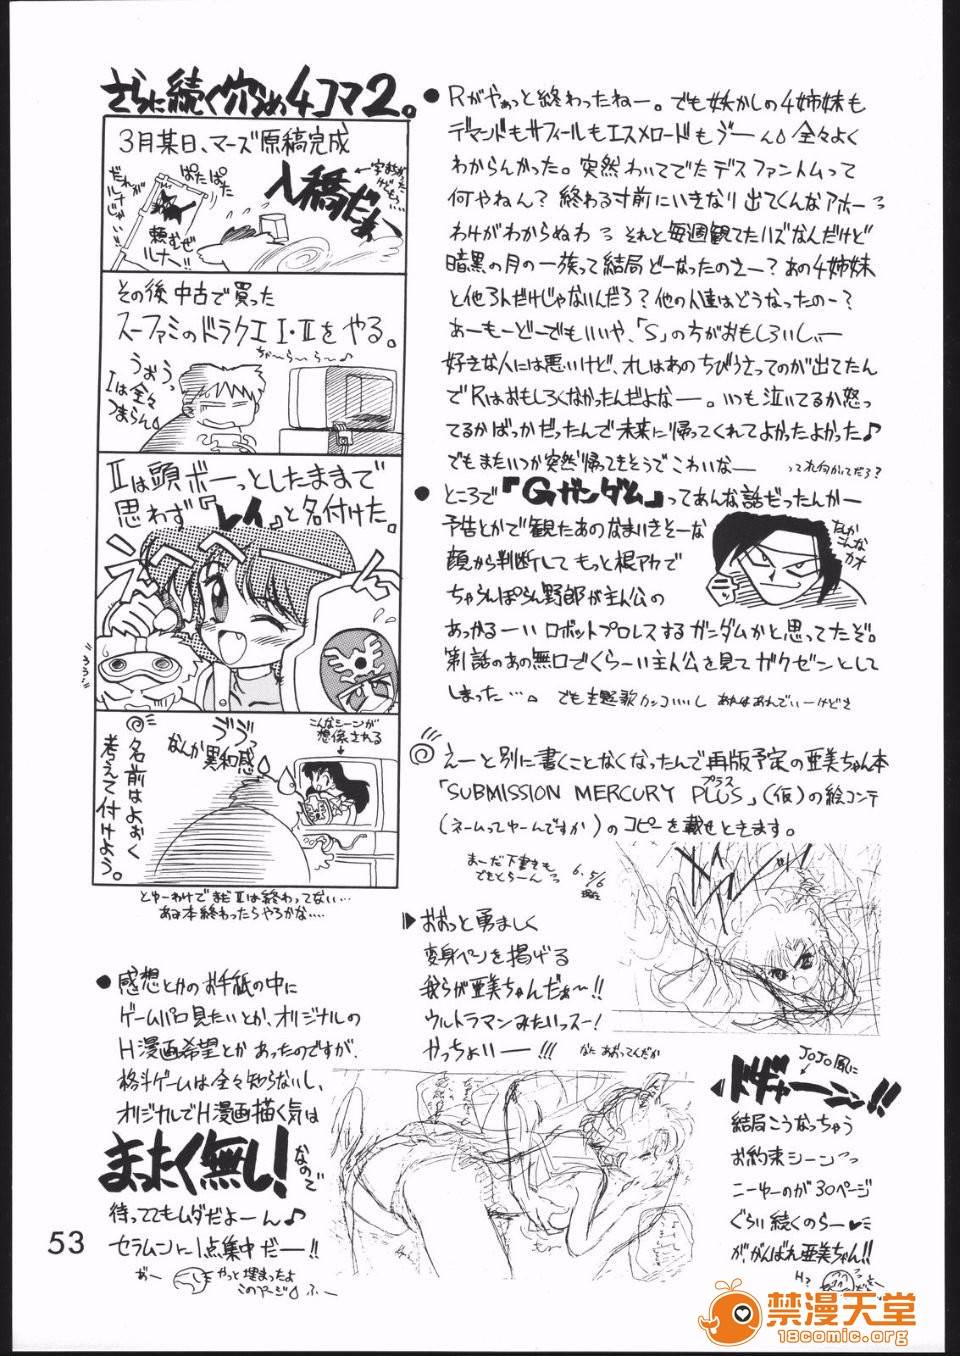 さらに続く穴うめ4コマ2。
3月某日、マーズ原稿完成
入稿だぁ
ぱたぱた
だれが
ルナじゃい!!
頼むぜ
ルナー!!
その後中古で買った
スーファミのドラクエI・IIをやる。
ちゃ〜ら〜ら〜♪
うおぅっ
Iは全々
つまらん
IIは頭ボーっとしたままで
思わず『レイ』と名付けた。
こんなシーンが
想像される
ううっ
なんか異和感
◎名前はよおく
考えて付けよう。
とゆーわけでまだIIは終わってない…
あみ本終わったらやろかな‥‥
●感想とかのお手紙の中に
ゲームパロ見たいとか、オリジナルの
H漫画希望とかあったのですが、
格斗ゲームは全々知らないし、
オリジナルでH漫画描く気は
まったく無い!なので
待っててもムダだよーん♪
セラムンに1点集中だー!!
やっと埋まったよ
このページ ふー
53
●Rがやぁっと終わったねー。でも妖かしの4姉妹も
デマンドもサフィールもエスメロードもうーん 全々よく
わからんかった。突然わいてでたデスファントムって
何やねん?終わる寸前にいきなり出てくんなアホーっ
わけがわからぬわっ それと毎週観てたハズなんだけど
暗黒の月の一族って結局どーなったのさー?あの4姉妹
と他3人だけじゃないんだろ?他の人達はどうなったのー?
あーもーどーでもいいや、「S」の方がおもしろいしぃー
好きな人には悪いけど、オレはあのちびうさってのが出てたん
でRはおもしろくなかったんだよなー。いつも泣いてるか怒っ
てるかばっかだったんで未来に帰ってくれてよかったよかった♪
でもまたいつか突然帰ってきそうでこわいなー
●ところで『Gガンダム』ってあんな話だったんかー
予告とかで観たあのなまいきそーな
顔から判断してもっと根アカで
ちゃらんぽらん野郎が主人公の
あっかるーいロボットプロレスするガンダムかと思ってたぞ。
第1話のあの無口でくらーい主人公を見てガクゼンとして
しまった…。でも主題歌カッコいいし
なんか
こんな
カオ
◎えーと別に書くことなくなったんで再版予定の亜美ちゃん本
「SUBMISSION MERCURY PLUS」(仮)の絵コンテ
プラス
(ネームってゆーんですか)のコピーを載せときます。
まーだ下書きも
でもとらーん
6.5/6
現在
▶おおっと勇ましく
変身ペンを掲げる
我らが亜美ちゃんだぁ〜!!
ウルトラマンみたいっスー!
かっちょいー!!!
なにあおってんだか
JoJo風に
◀ドギャーン!!
結局こうなっちゃう
お約束シーンっ
こーゆーのが30ページ
ぐらい続くのらー♥
が、がんばれ亜美ちゃん!!
禁漫天堂
18comic.org